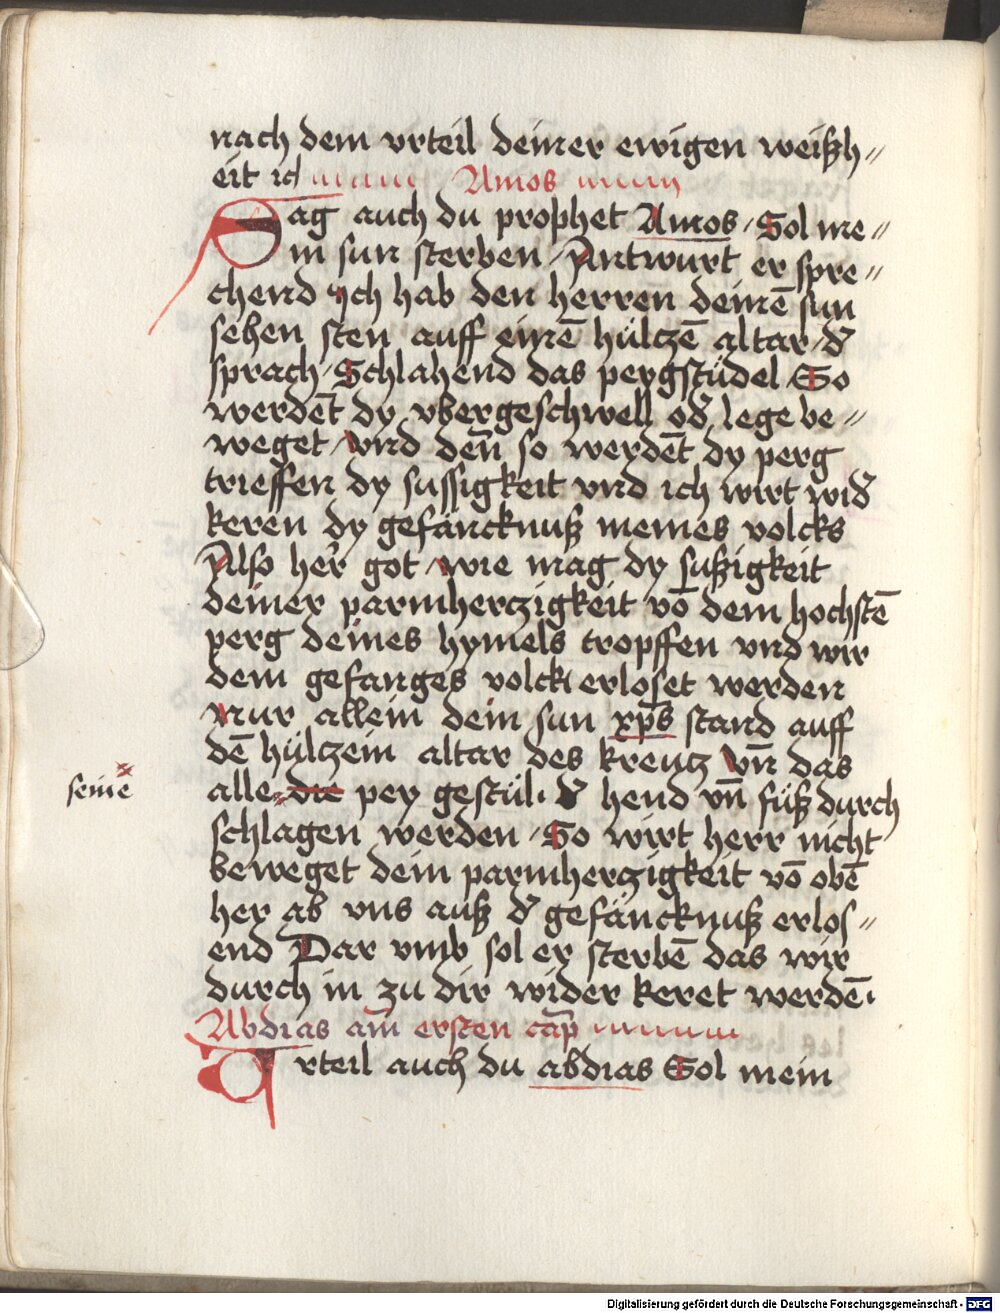 nach dem vrteil deiner ewigen weißh〃
eit ich Amos
Sag auch du prophet Amos / Sol me〃
in sun sterben / Antwurt er spre〃
chend Ich hab den herren deinē sun
sehen sten auff einē hülczē altar / d̄
sprach / Schlahend das peygstüdel / So
werdēt dy vbergeschwell od̄ lege be〃
weget / vnd den̄ so werdēt dy perg
trieffen dy sussigkeit vnd ich wirt wid̄
keren dy gefäncknuß meines volcks
Also her̄ got wie mag dy sußigkeit
deiner parmherczigkeit vō dem hochstē
perg deines hymels tropffen vnd wir
dem gefanges volck erloset werden
Nur allein dein sun xp̄s stand auff
dē hülczein altar des kreucz Vn̄ das
alle die pey gestül · d̄ hend vn̄ füß durch
seine
schlagen werden / So wirt herr nicht
beweget dein parmherczigkeit vō obē
her ab vns auß d̄ gefäncknuß erlos〃
end Dar vmb sol er sterbē das wir
durch in zu dir wider keret werdē ·
Abdias am̄ ersten cap̄
Vrteil auch du abdias Sol mein
Digitalisierung gefördert durch die Deutsche Forschungsgemeinschaft - DFG